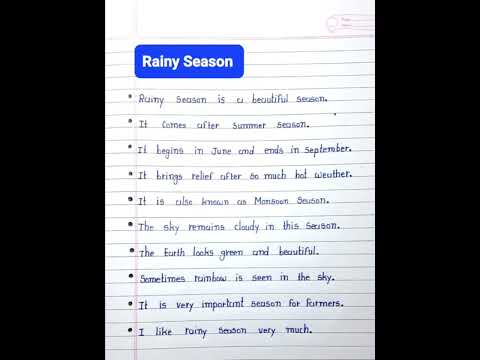 Rainy Season
• Rainy season is a beautiful season.
• It comes after summer season.
• It begins in June and ends in september.
• It brings relief after so much hot weather.
• It is also known as Monsoon Season.
• The sky remains cloudy in this season.
• The Earth looks green and beautiful.
• Sometimes rainbow is seen in the sky.
• It is very important season for farmers.
• I like rainy season very much.